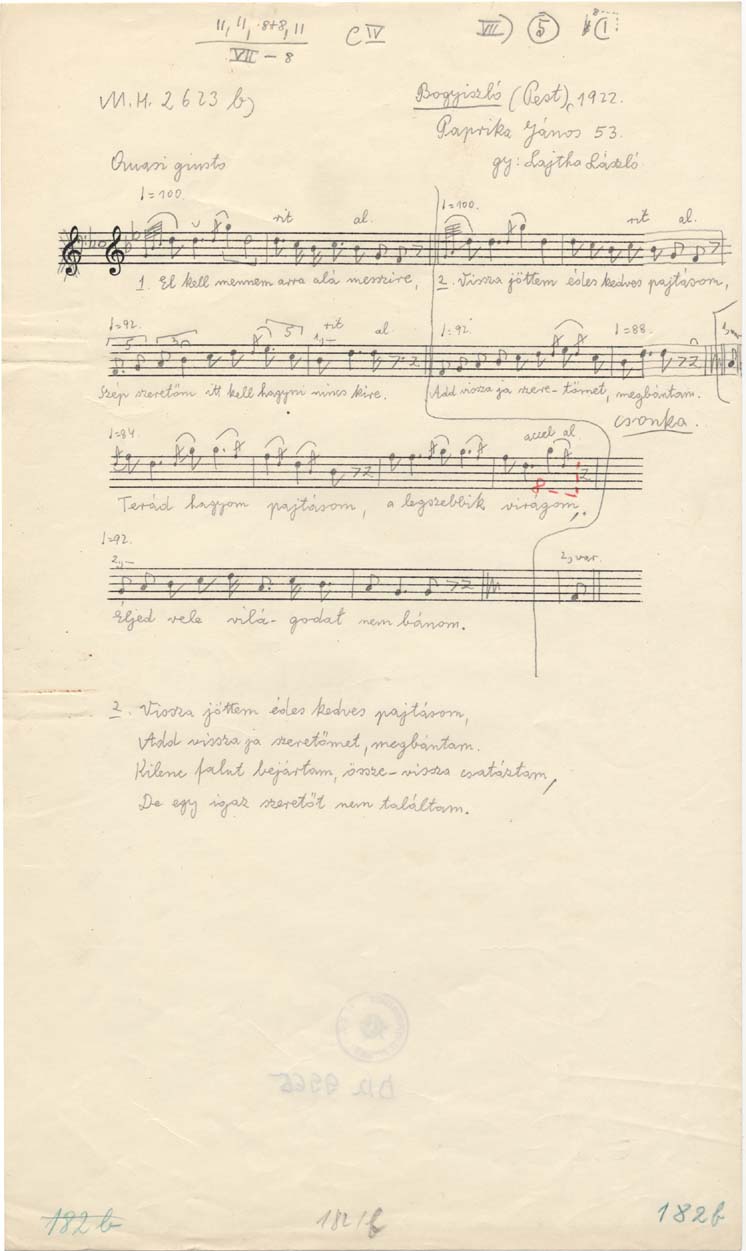 11, 11, 8+8, 11
VII – 8
C IV
VII) 5 1
8
M.H. 2623 b)
Bogyiszló (Pest), 1922.
Paprika János 53.
Quasi giusto
gy: Lajtha László
= 100.
rit al.
= 100.
rit al.
1. El kell mennem arra alá messzire,
2. Vissza jöttem édes kedves pajtásom,
= 92.
5 3 5
1,-
rit al.
= 92.
= 88.
Szép szeretőm itt kell hagyni nincs kire.
Add vissza ja szere- tőmet, megbántam.
csonka.
= 84.
accel al.
8
Terád hagyom pajtásom, a legszebbik virágom,
= 92.
2,-
2, var.
Éljed vele vilá- godat nem bánom.
2. Vissza jöttem édes kedves pajtásom,
Add vissza ja szeretőmet, megbántam.
Kilenc falut bejártam, össze-vissza csatáztam,
De egy igaz szeretőt nem találtam.
182 b
182/b
182b